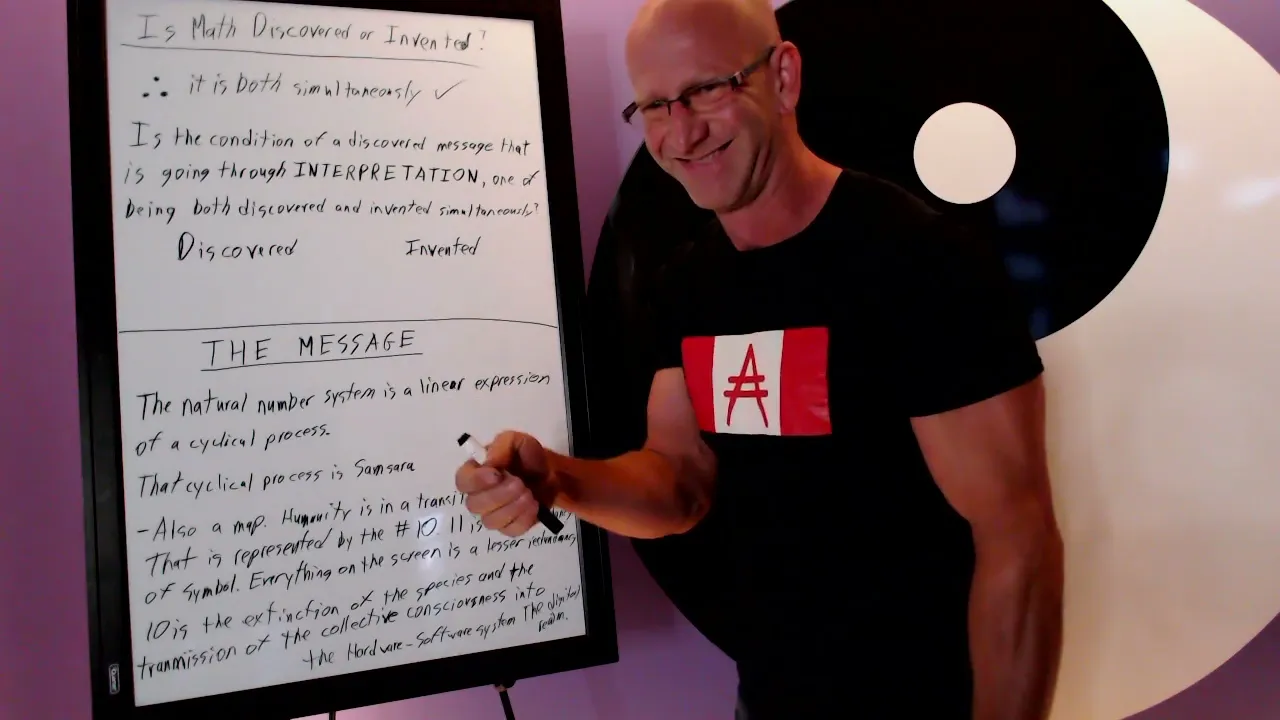 Is Math Discovered or Invented?
∴ it is both simultaneously ✓
Is the condition of a discovered message that
is going through INTERPRETATION, one of
being both discovered and invented simultaneously?
Discovered Invented
THE MESSAGE
The natural number system is a linear expression
of a cyclical process.
That cyclical process is Samsara
-Also a map. Humanity is in a
That is represented by the #10. 11 is
of symbol. Everything on the screen is a lesser redundancy
10 is the extinction of the species and the
tranmission of the collective consciousness into
the Hardware-Software system The digital
realm.